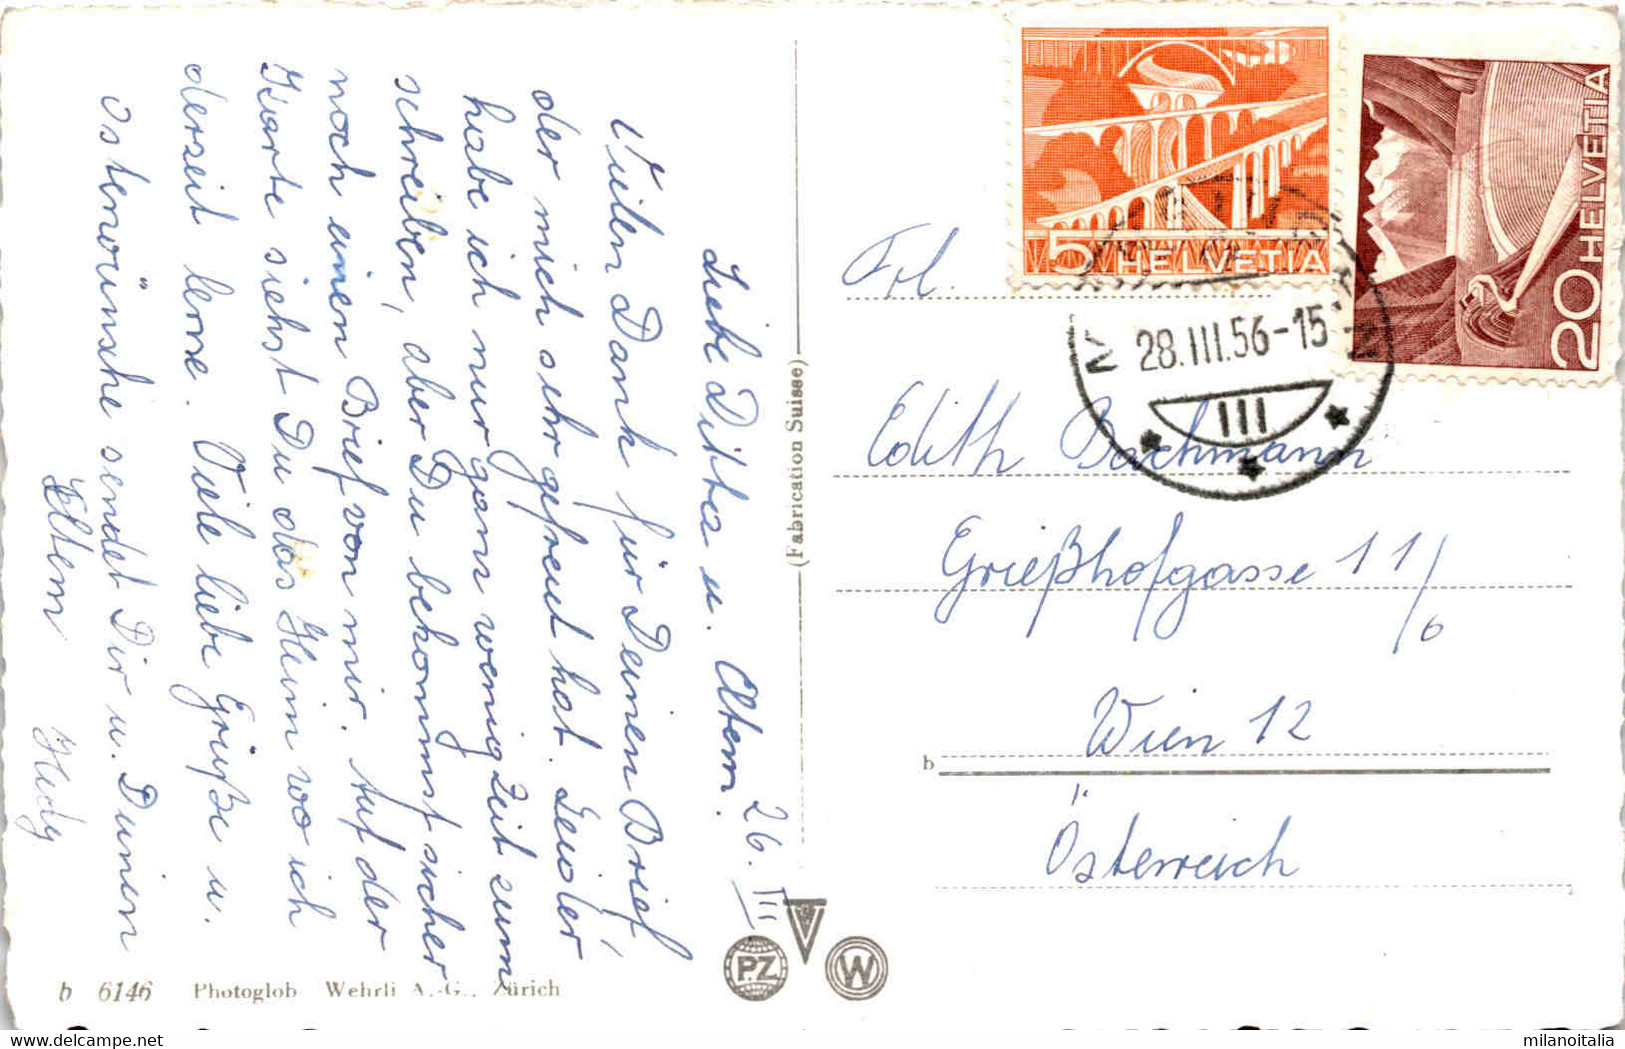 26. III
Liebe Ditta u. Eltern.
Vielen Dank für Deinen Brief
der mich sehr gefreut hat. Leider
habe ich nur ganz wenig Zeit zum
schreiben, aber Du bekommst sicher
noch einen Brief von mir. Auf der
Karte siehst Du das Heim wo ich
derzeit lerne. Viele liebe Grüße u.
Osterwünsche sendet Dir u. Deinen
Eltern Hedy
(Fabrication Suisse)
b 6146 Photoglob Wehrli A.-G., Zürich
PZ
W
5 HELVETIA
20 HELVETIA
28.III.56-15
III
Frl.
Edith Bachmann
Grießhofgasse 11/6
Wien 12
b
Österreich
milanoitalia